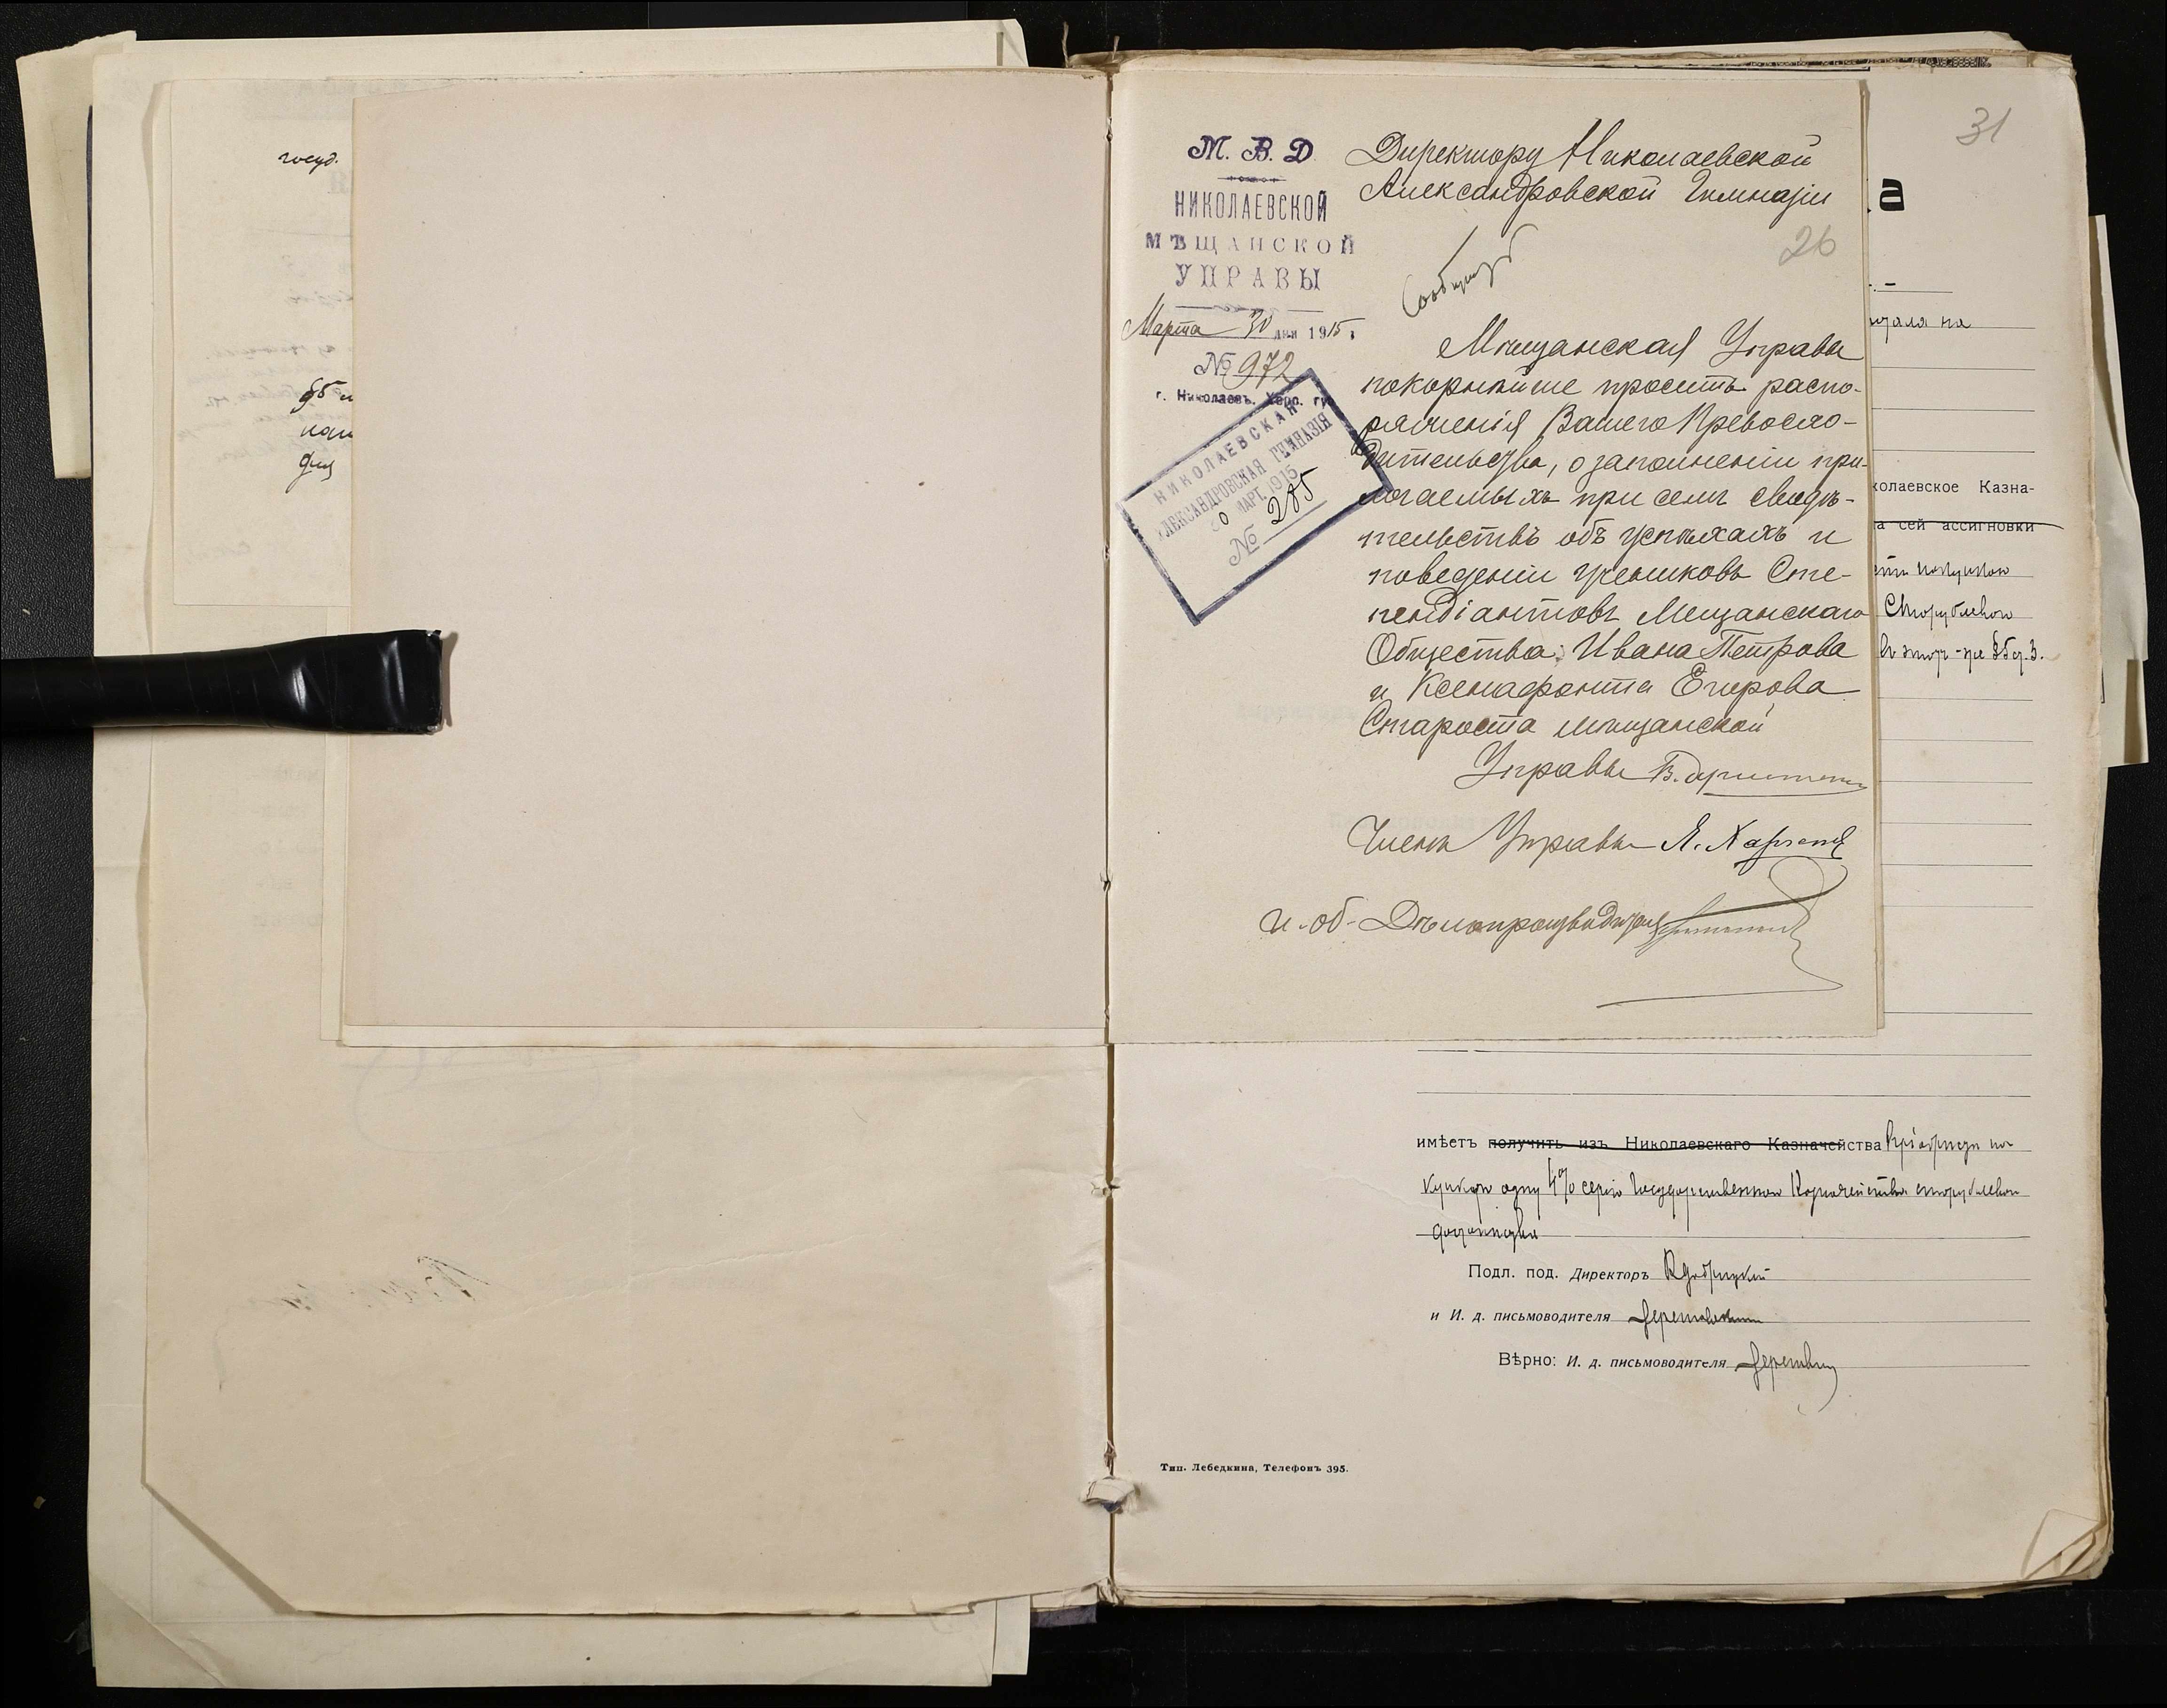 госуд.
31
М. В. Д.
НИКОЛАЕВСКОЙ
МѢЩАНСКОЙ
УПРАВЫ
Марта 30 дня 1915 г.
№ 972
г. Николаевъ. Херс. губ
НИКОЛАЕВСКАЯ
АЛЕКСАНДРОВСКАЯ ГИМНАЗІЯ
30 МАРТ. 1915
№ 285
Директору Николаевской
Александровской Гимназіи
26
Мѣщанская Управа
покорнѣйше проситъ распо-
ряженія Вашего Превосхо-
дительства, о заполненіи при-
лагаемыхъ при семъ свидѣ-
тельствъ объ успѣхахъ и
поведеніи учениковъ Сте-
пендіантовъ Мещанскаго
Общества: Ивана Петрова
и Ксенафонта Егорова
Староста мѣщанской
Управы
Членъ Управы
и. об. Дѣлопроизводителя
а
колаевское Казна-
а сей ассигновки
Сторублевой
имѣетъ получить изъ Николаевскаго Казначейства
одну 4% серію Государственнаго Казначейства сторублеваго
достоинства
Подл. под. Директоръ
и И. д. письмоводителя
Вѣрно: И. д. письмоводителя
Тип. Лебедкина, Телефонъ 395.